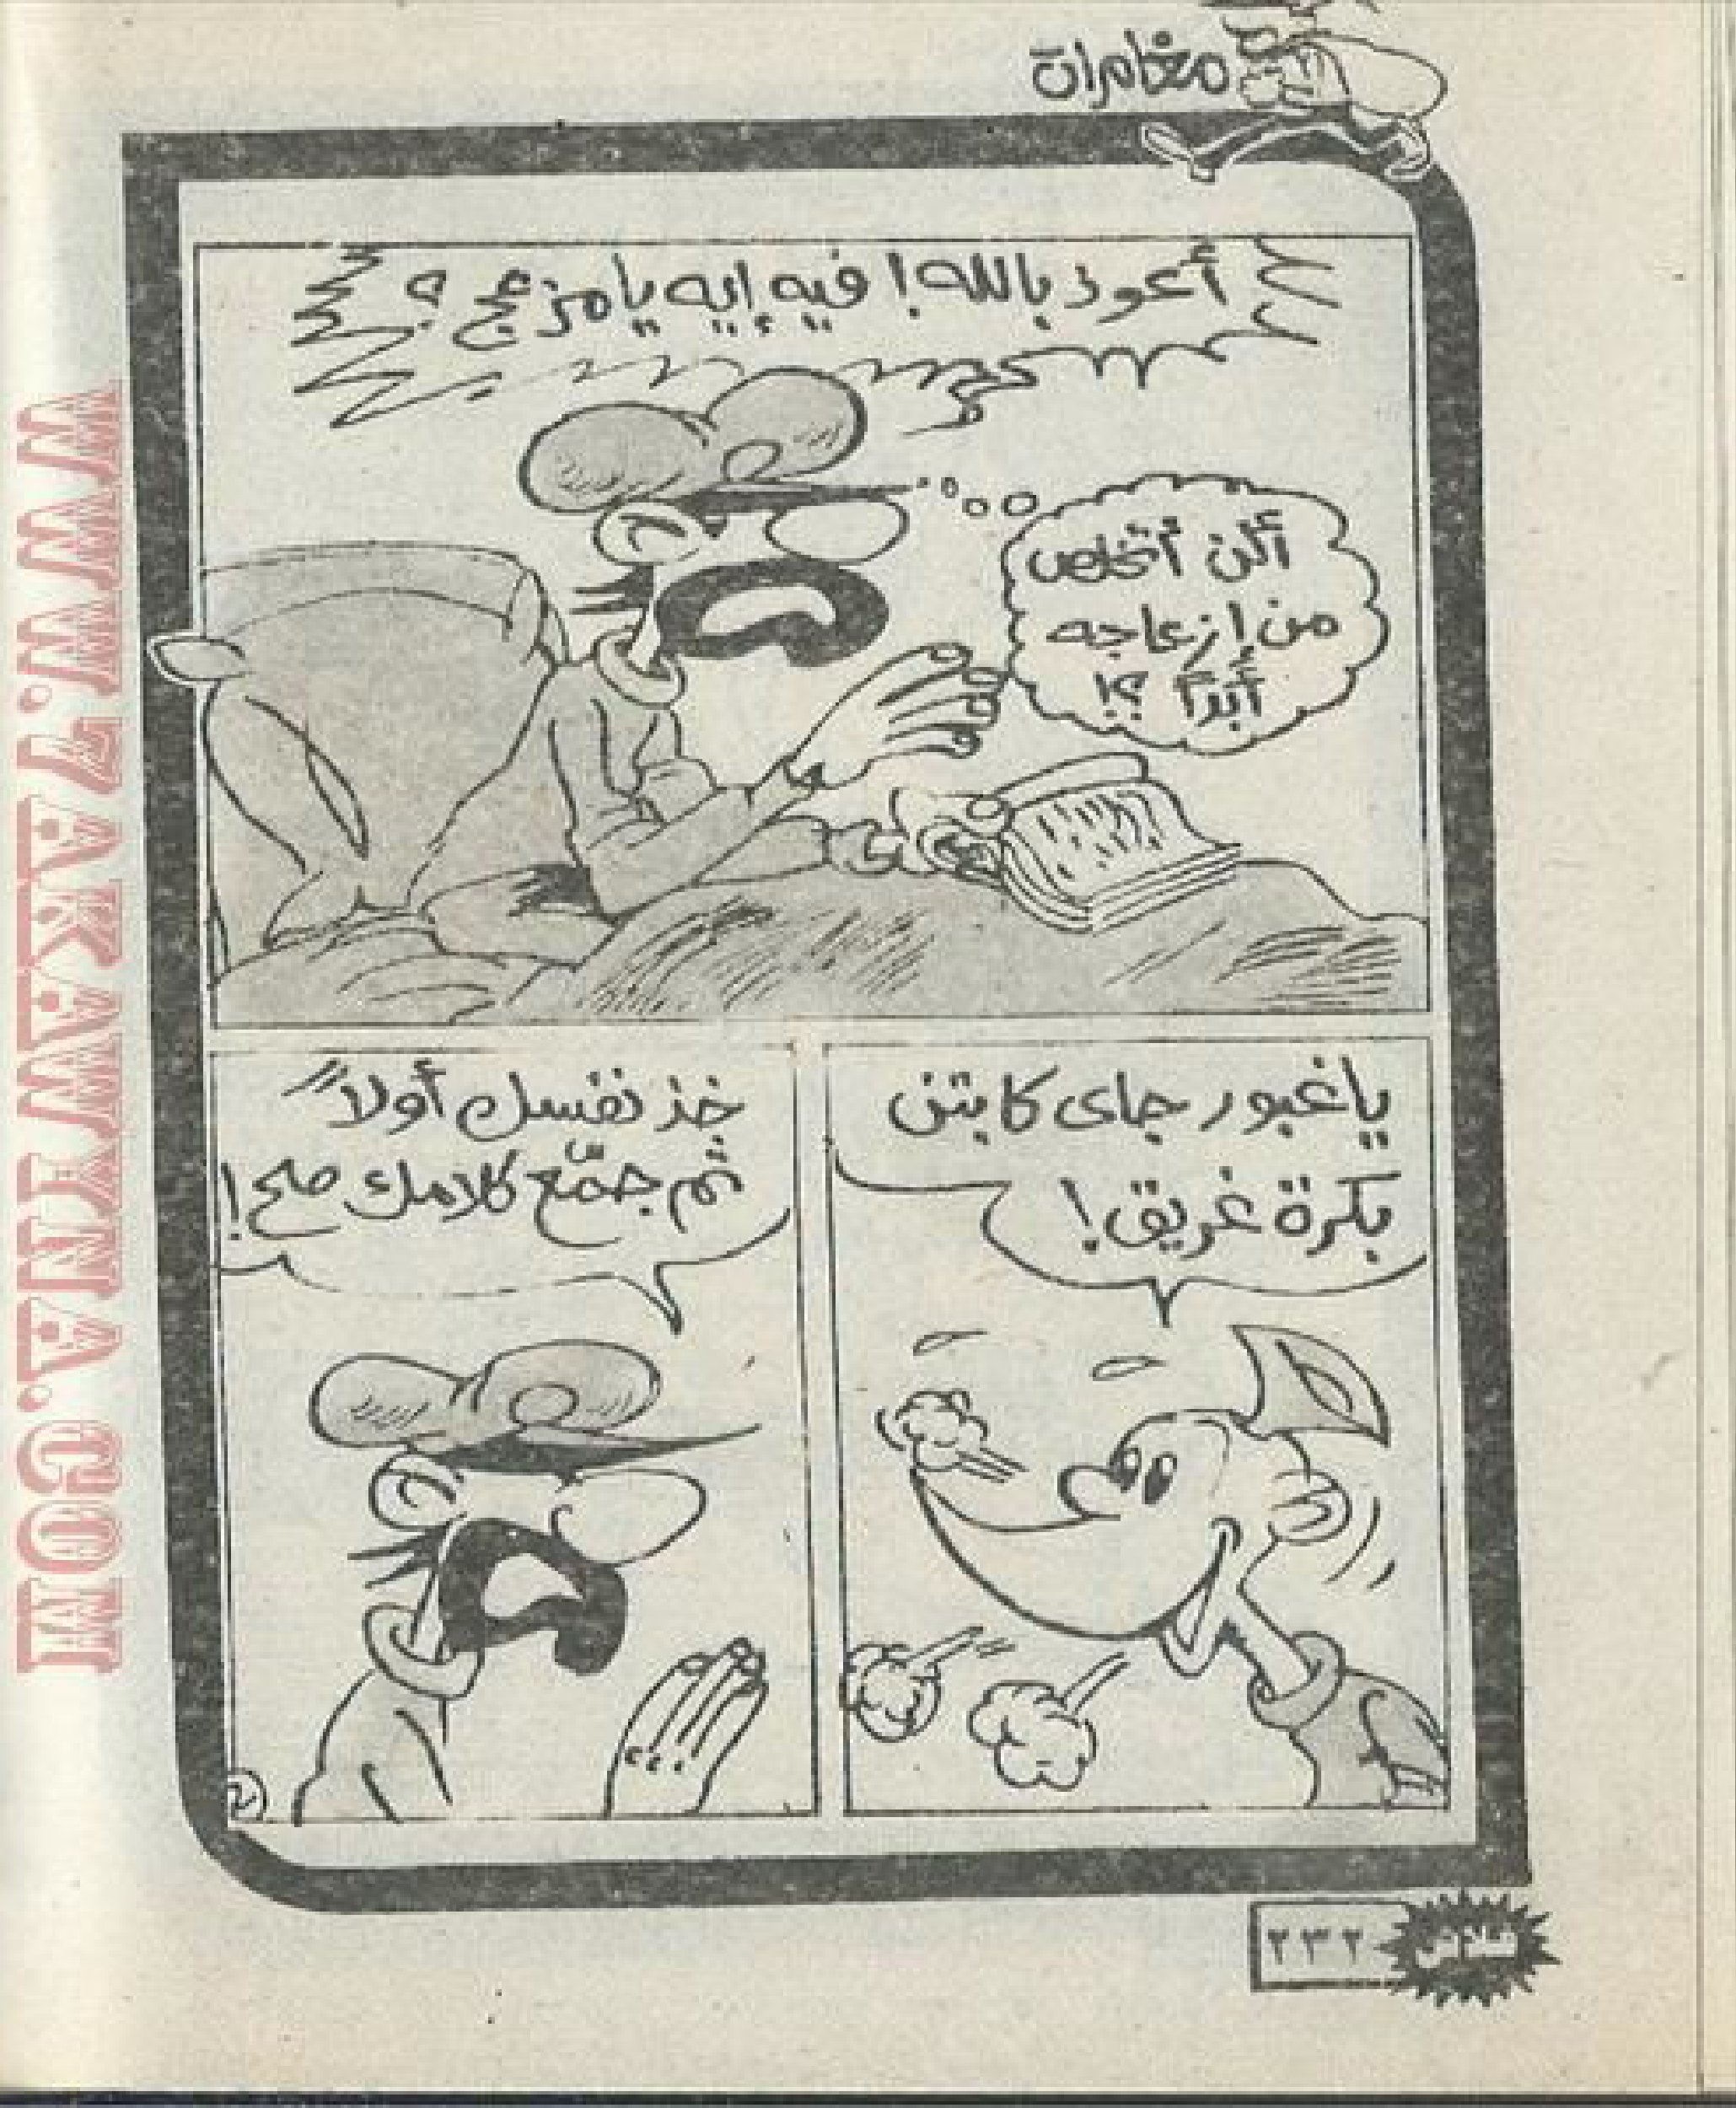 مغامرات
أعوذ بالله! فيه إيه يا مزعج؟
ألن أتخلص
من إزعاجه
أبدًا ؟!
يا غبور جاى كابتن
بكرة غريق!
خذ نفسك أولاً
ثم جمّع كلامك صح!
٢
٢٣٢
WWW.7AKAWENA.COM